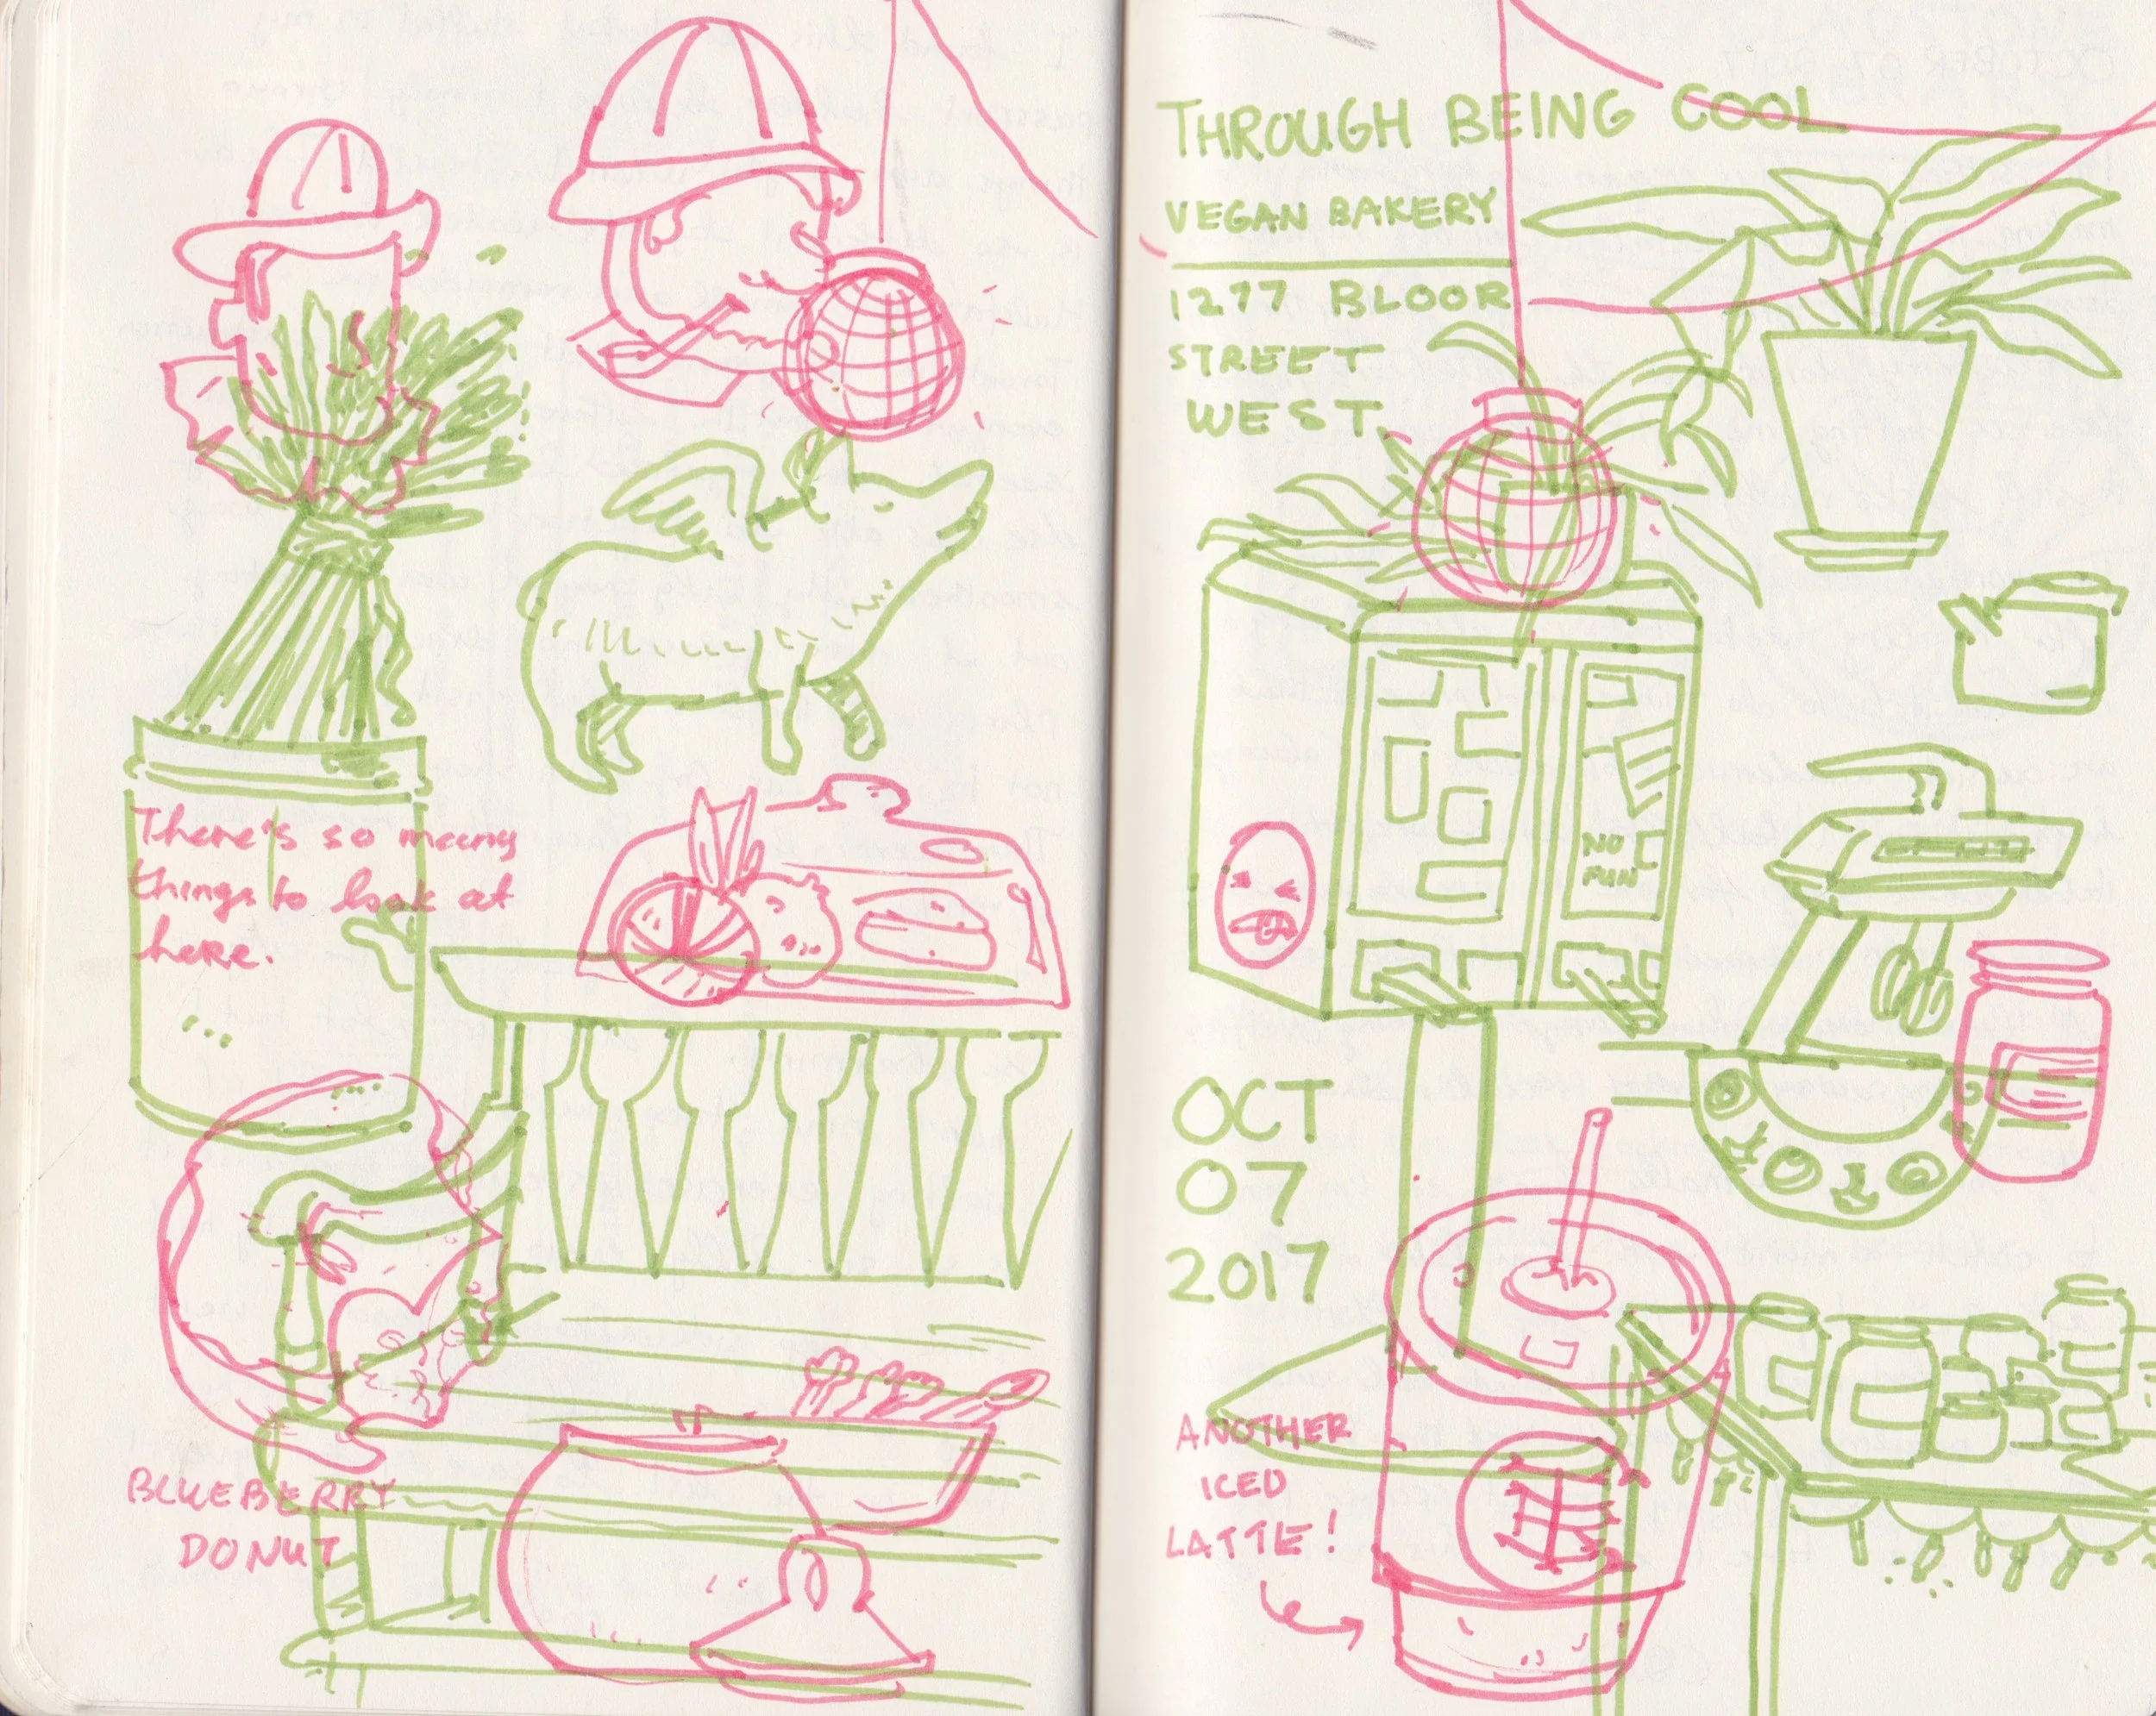 There's so many
things to look at
here.
BLUEBERRY
DONUT
THROUGH BEING COOL
VEGAN BAKERY
1277 BLOOR
STREET
WEST.
NO
FUN
OCT
07
2017
ANOTHER
ICED
LATTE!